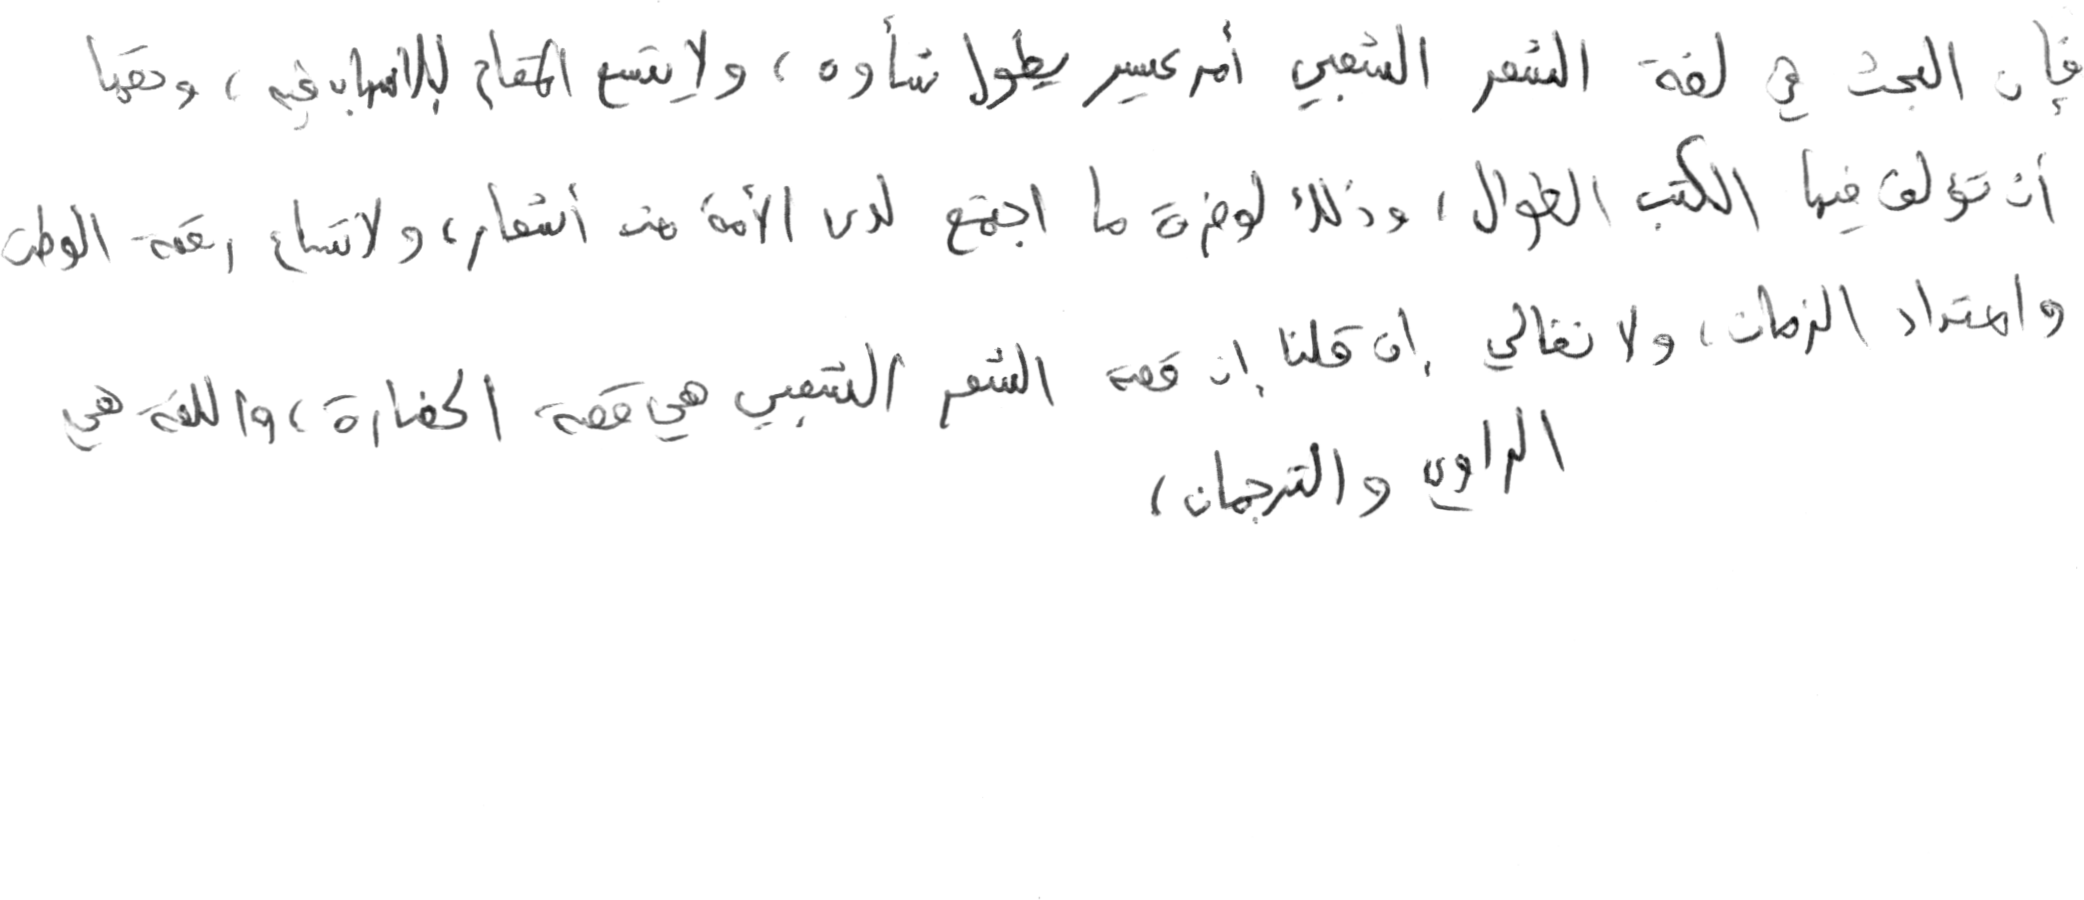 فإن البحث في لغة الشعر الشعبي أمر عسير يطول شأوه، ولا يتسع المقام للإسهاب فيه، وحقها
أن تؤلف فيها الكتب الطوال، وذلك لوفرة ما اجتمع لدى الأمة من أشعار، ولاتساع رقعة الوطن
وامتداد الزمان، ولا نغالي إن قلنا إن قصة الشعر الشعبي هي قصة الحضارة، واللغة هي
الراوي والترجمان،